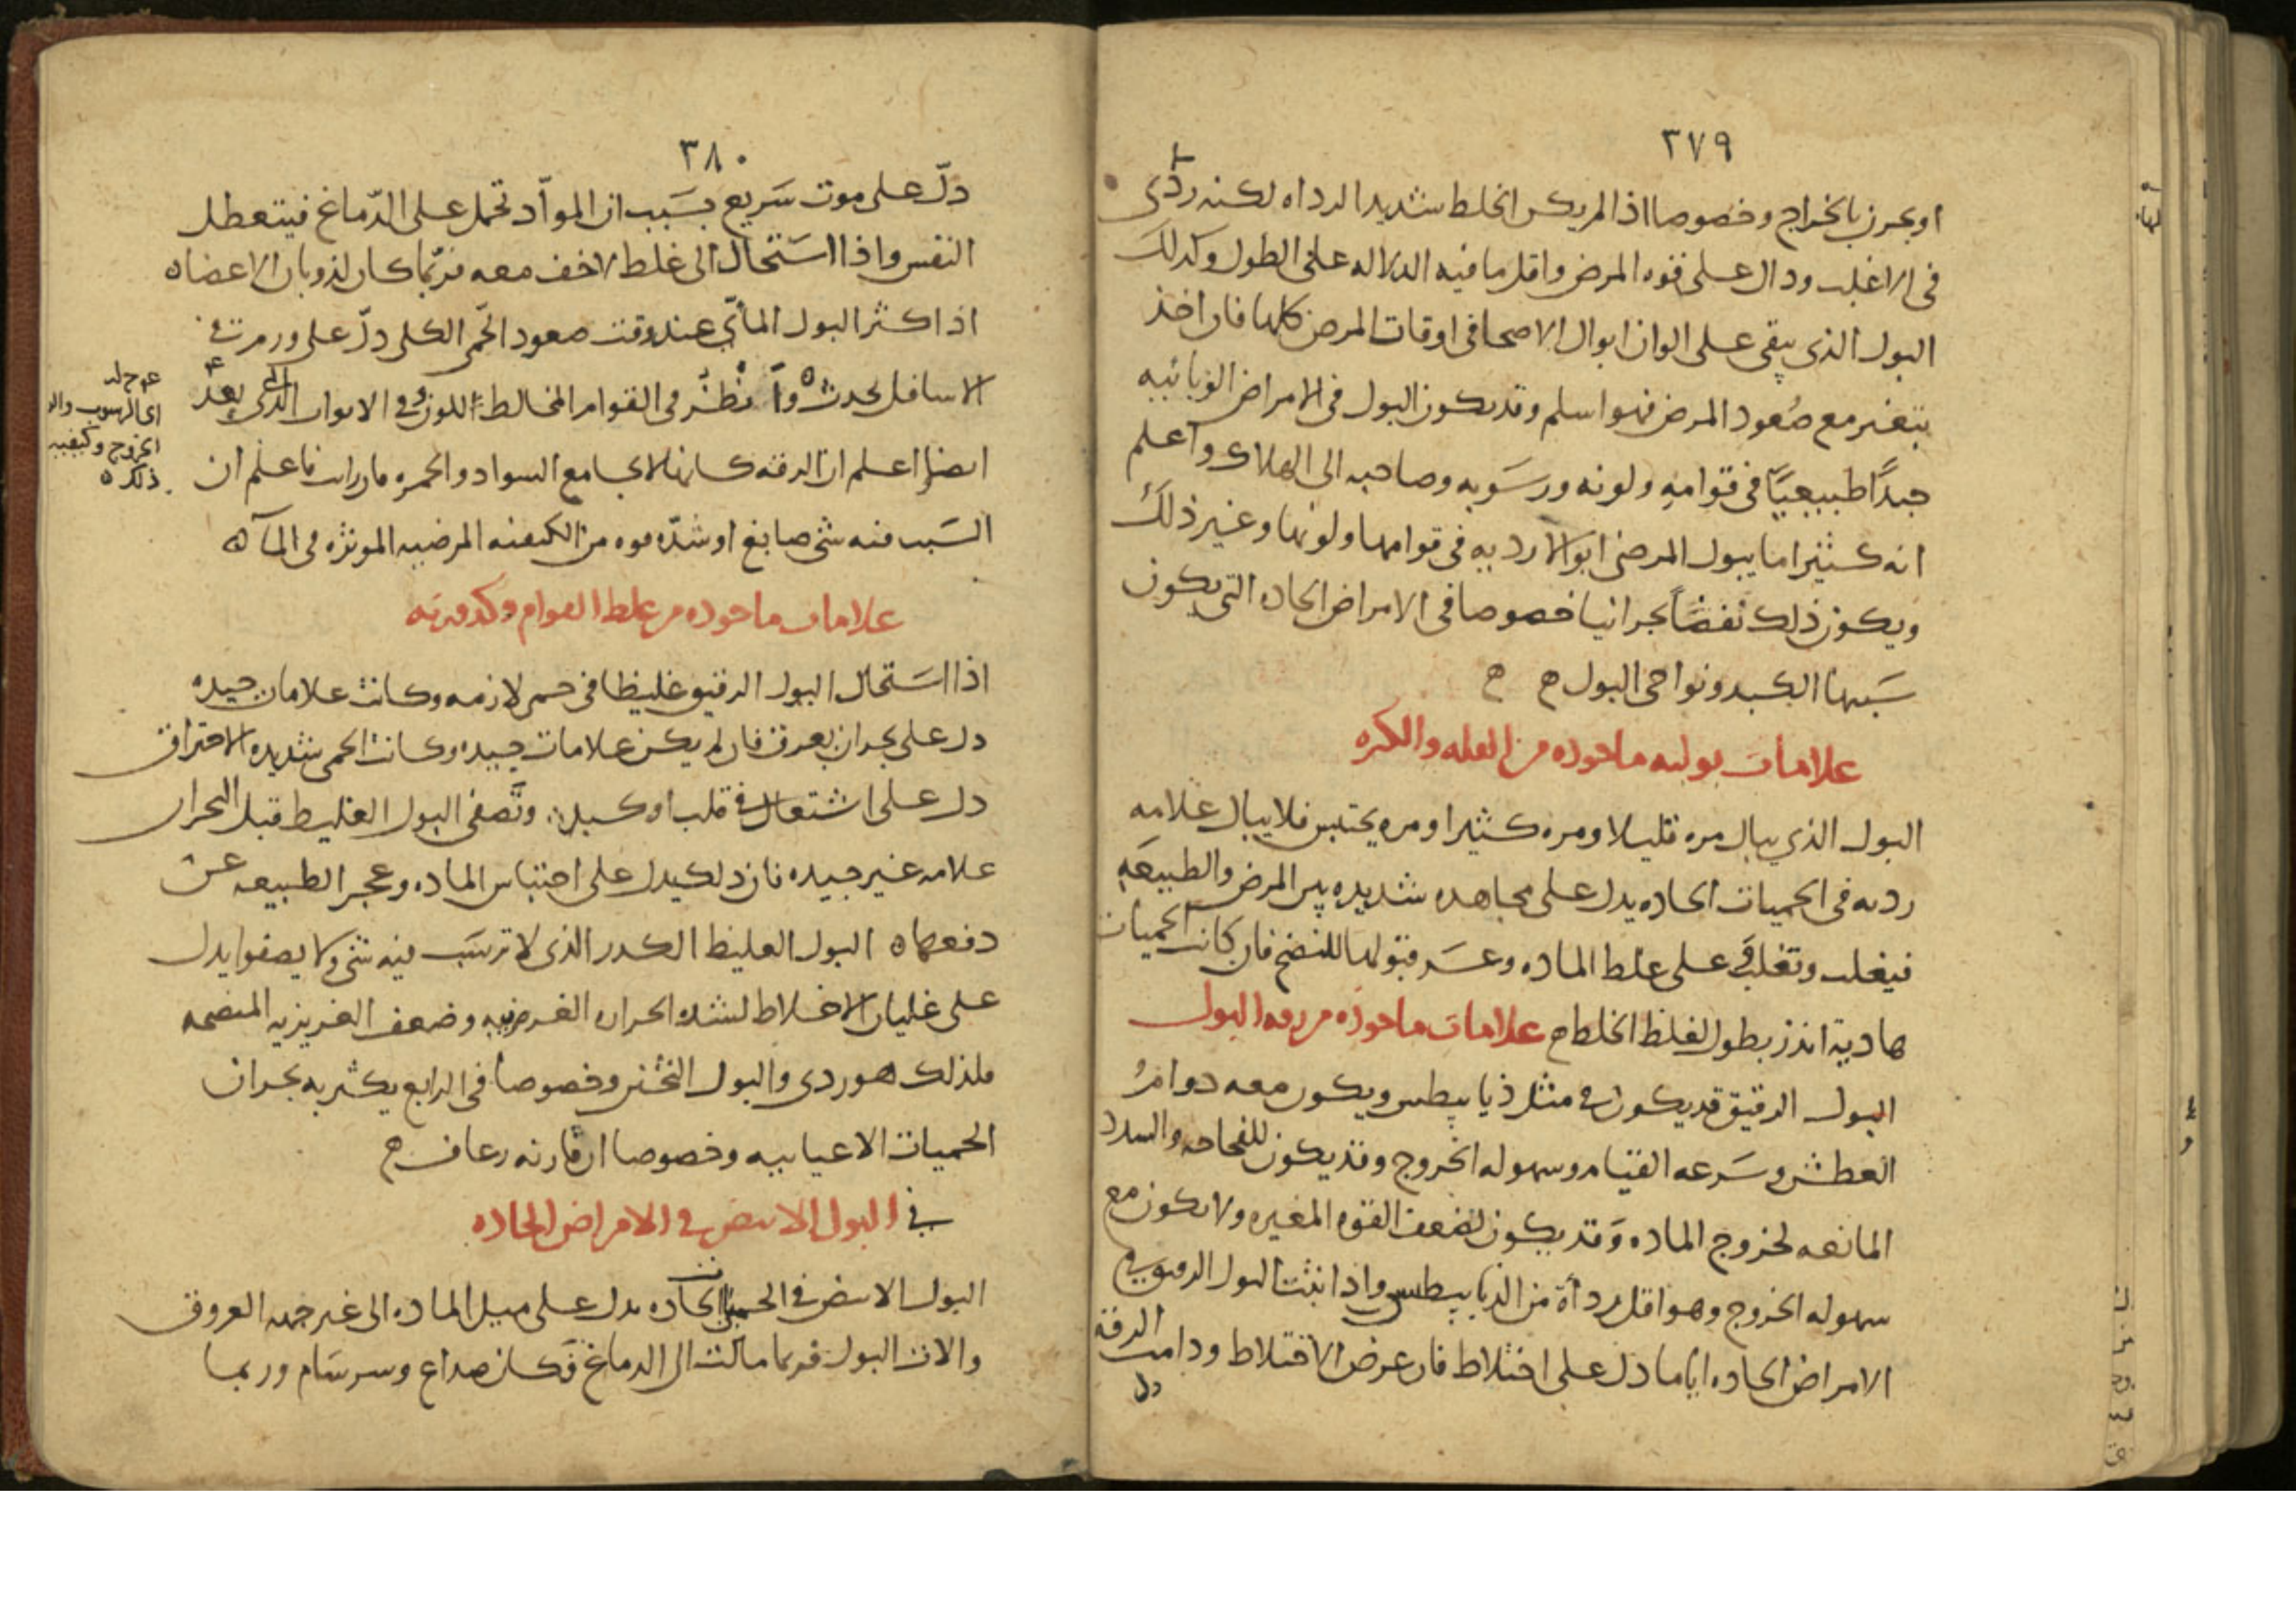 ٣٧٩
او بحرن بالخراج وخصوصا اذا لم يكن الخلط شديد الرداه لكنه ردى
فى الاغلب ودال على قوه المرض واقل ما فيه الدلاله على الطول وكدلك
البول الذى يبقى على الوان ابوال الاصحا فى اوقات المرض كلها فان اخذ
يتغير مع صُعود المرض فهو اسلم وقد يكون البول فى الامراض الوبائيه
جيدًا طبيعيًا فى قوامهِ ولونه ورسَوبه وصاحبه الى الهلاك واعلم
انه كثيرا ما يبول المرضى ابوالا رديه فى قوامها ولونها وغير ذلك
ويكون ذلك نفضًا بحرانيا خصوصا فى الامراض الحاده التى يكون
سَببها الكبد ونواحى البول ح ح
علامات بوليه ماخوذه من القله والكثره
البول الذي يبال مره قليلا ومره كثيرا ومره يحتبس فلا يبال علامه
رديه فى الحميات الحاده يدل على مجاهده شديده بين المرض والطبيعَه
فيغلب وتغلب على غلظ الماده وعسَر قبولها للنضج فان كانت الحميات
هادية انذر بطول لغلظ الخلط ح علامات ماخوذه من رقه البول
البول الرقيق قد يكون فى مثل ذيابيطس ويكون معه دوامُ
العطش وسَرعه القيام وسهوله الخروج وقد يكون للفجاجه والسدد
المانعه لخروج الماده وَقد يكون لضعف القوه المغيره ولا يكون مع
سهوله الخروج وهو اقل رداة من الذيابيطس واذا ثبت البول الرقيق فى
الامراض الحاده اياما دل على اختلاط فان عرض الاختلاط ودامت الرقه
دل
٣٨٠
دلّ على موت سَريع بسَبب ان الموآد تحمل على الدّماغ فيتعطل
النفس واذا استَحال الى غلظ لا خف معه فربّما كان لذوبان الاعضاه
اذا كثر البول المائي عند وقت صعود الحّمى الكلى دلّ على ورم فى
الاسافل يحدث ه وا نظر فى القوام المخالط اللون وفى الابواب التى بعد
ايضا اعلم ان الرقه كانها لا تجامع السواد والحمره فان رايت فاعلم ان
السَبب فيه شى صابغ او شدّه قوه من الكيفيه المرضيه الموثره فى المآ ه
علامات ماخوذه من غلظ القوام وكدورته
اذا استَحال البول الرقيق غليظا فى حمى لازمه وكانت علامات جيده
دل على بحران بعرق فان لم يكن علامات جيده وكانت الحمى شديده الاحتراق
دل على اشتعال فى قلب او كبد وتَصفى البول الغليظ قبل البحران
علامه غير جيده فان ذلك يدل على احتباس الماده وعجز الطبيعه عن
دفعها ه البول الغليظ الكدر الذى لا ترسَب فيه شى ولا يصفوا يدل
على غليان الاخلاط لشده الحراره الغريبه وضعف الغريزيه المنضجه
فلذلك هو ردى والبول الخثر وخصوصا فى الرابع يكثر به بحران
الحميات الاعيابيه وخصوصا ان قارنه رعاف ح
فى البول الابيض فى الامراض الحاده
البول الابيض فى الحميات الحاده يدل على ميل الماده الى غير جهه العروق
والات البول فربما مالت الى الدماغ فكان صداع وسرسَام وربما
الخروج وكيفيه
ذلك ه